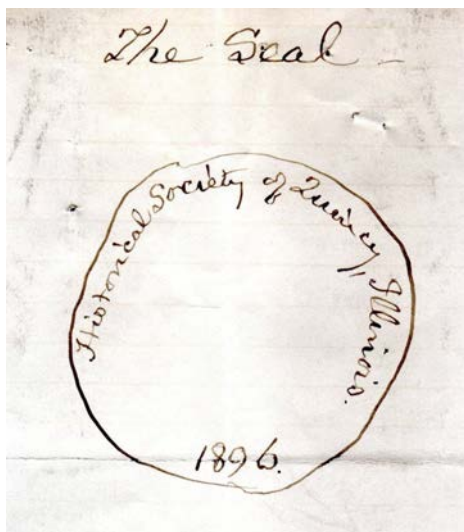 The Seal -
Historical Society of Quincy, Illinois.
1896.